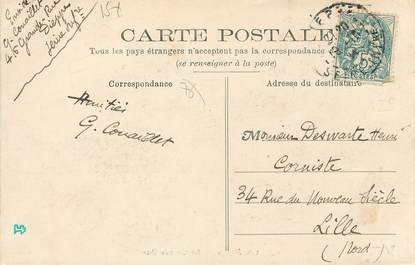 G. Conaillet
46 Grande Rue
Dieppe
15f
CARTE POSTALE
Tous les pays étrangers n'acceptent pas la correspondance
(se renseigner à la poste)
Correspondance
Adresse du destinataire
Amitiés
G. Conaillet
Monsieur Deswarte Henri
Corniste
34 Rue du Nouveau Siècle
Lille
(Nord)